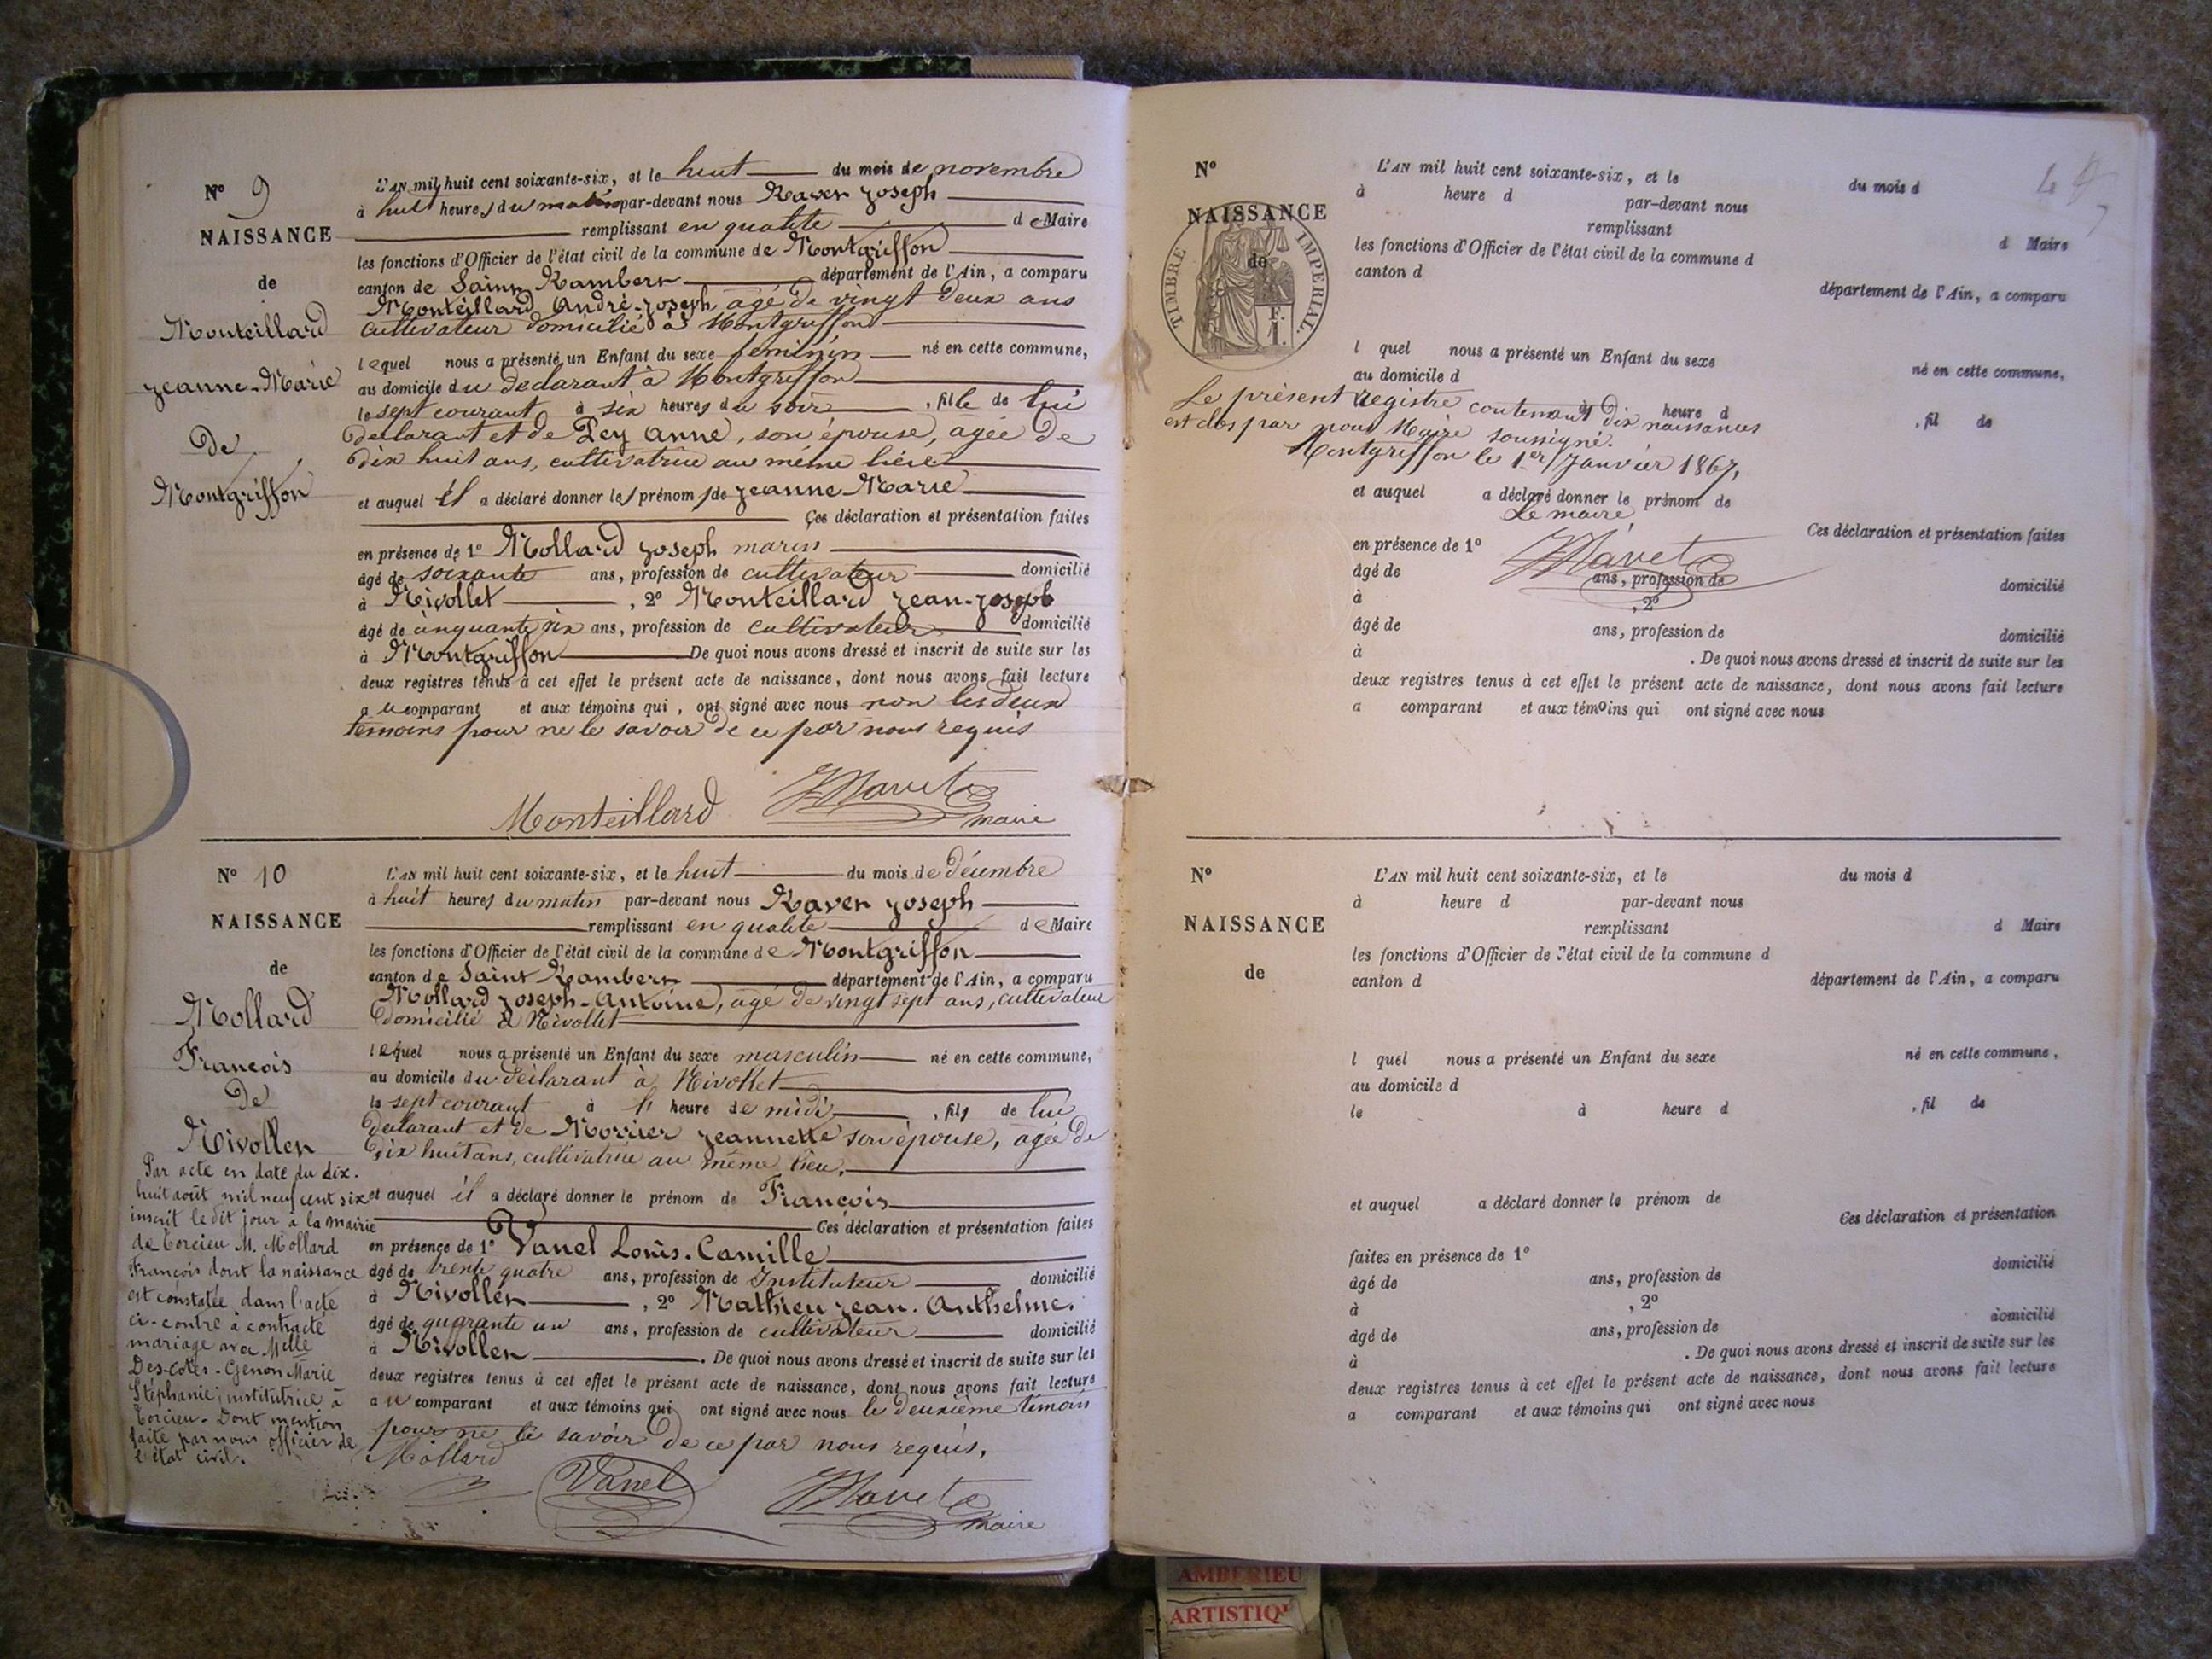 N° 9
NAISSANCE
de
Monteillard
Jeanne-Marie
De
Montgriffon
L'AN mil huit cent soixante-six, et le huit du mois de novembre
à huit heures du matin par-devant nous Ravet Joseph
remplissant en qualité de Maire
les fonctions d'Officier de l'état civil de la commune de Montgriffon
canton de Saint Rambert département de l'Ain, a comparu
Monteillard André-Joseph agé de vingt deux ans
cultivateur domicilié à Montgriffon
lequel nous a présenté un Enfant du sexe feminin né en cette commune,
au domicile du declarant à Montgriffon
le sept courant à six heures du soir, fille de lui
declarant et de Pey Anne, son épouse, agée de
dix huit ans, cultivatrice au même lieu
et auquel il a déclaré donner les prénoms de Jeanne-Marie
Ces déclaration et présentation faites
en présence de 1° Mollard Joseph marin
âgé de soixante ans, profession de cultivateur domicilié
à Nivollet, 2° Monteillard Jean-Joseph
âgé de cinquante six ans, profession de cultivateur domicilié
à Montgriffon De quoi nous avons dressé et inscrit de suite sur les
deux registres tenus à cet effet le présent acte de naissance, dont nous avons fait lecture
au comparant et aux témoins qui, ont signé avec nous non les deux
témoins pour ne le savoir de ce par nous requis
Monteillard JRavet
maire
N° 10
NAISSANCE
de
Mollard
François
De
Nivollet
L'AN mil huit cent soixante-six, et le huit du mois de Décembre
à huit heures du matin par-devant nous Ravet Joseph
remplissant en qualité de Maire
les fonctions d'Officier de l'état civil de la commune de Montgriffon
canton de Saint Rambert département de l'Ain, a comparu
Mollard Joseph-Antoine, agé de vingt sept ans, cultivateur
domicilié à Nivollet
lequel nous a présenté un Enfant du sexe masculin né en cette commune,
au domicile du déclarant à Nivollet
le sept courant à heure de midi, fils de lui
declarant et de Morrier Jeannette son épouse, agée de
dix huit ans, cultivatrice au même lieu.
et auquel il a déclaré donner le prénom de François
Ces déclaration et présentation faites
en présence de 1° Vanel Louis-Camille
âgé de trente quatre ans, profession de Instituteur domicilié
à Nivollet, 2° Mathieu Jean-Anthelme.
âgé de quarante un ans, profession de cultivateur domicilié
à Nivollet. De quoi nous avons dressé et inscrit de suite sur les
deux registres tenus à cet effet le présent acte de naissance, dont nous avons fait lecture
au comparant et aux témoins qui ont signé avec nous le deuxième témoin
pour ne le savoir de ce par nous requis,
Mollard Vanel JRavet
maire
Par acte en date du dix-
huit août mil neuf cent six
inscrit le dit jour à la mairie
de Torcieu M. Mollard
François dont la naissance
est constatée dans l'acte
ci-contre à contracté
mariage avec Melle
Des-cotes-Genon Marie
Stéphanie, institutrice à
Torcieu. Dont mention
faite par nous officier de
l'état civil.
N°
NAISSANCE
de
TIMBRE IMPERIAL.
F.
1.
L'AN mil huit cent soixante-six, et le du mois d
à heure d par-devant nous
remplissant d Maire
les fonctions d'Officier de l'état civil de la commune d
canton d département de l'Ain, a comparu
l quel nous a présenté un Enfant du sexe né en cette commune,
au domicile d
à heure d, fil de
Le présent registre contenant dix naissances
est clos par nous Maire soussigné.
Montgriffon le 1er Janvier 1867,
et auquel a déclaré donner le prénom de
Le maire
Ces déclaration et présentation faites
en présence de 1°
JRavet
âgé de ans, profession de domicilié
à, 2°
âgé de ans, profession de domicilié
à. De quoi nous avons dressé et inscrit de suite sur les
deux registres tenus à cet effet le présent acte de naissance, dont nous avons fait lecture
a comparant et aux témoins qui ont signé avec nous
N°
NAISSANCE
de
L'AN mil huit cent soixante-six, et le du mois d
à heure d par-devant nous
remplissant d Maire
les fonctions d'Officier de l'état civil de la commune d
canton d département de l'Ain, a comparu
l quel nous a présenté un Enfant du sexe né en cette commune,
au domicile d
le à heure d, fil de
et auquel a déclaré donner le prénom de
Ces déclaration et présentation
faites en présence de 1°
âgé de ans, profession de domicilié
à, 2°
âgé de ans, profession de domicilié
à. De quoi nous avons dressé et inscrit de suite sur les
deux registres tenus à cet effet le présent acte de naissance, dont nous avons fait lecture
a comparant et aux témoins qui ont signé avec nous
AMBERIEU
ARTISTIQ